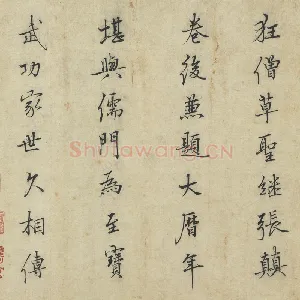 狂僧草聖継張顛
卷後兼題大曆年
堪與儒門為至寶
武功家世久相傳
Shufawang.CN